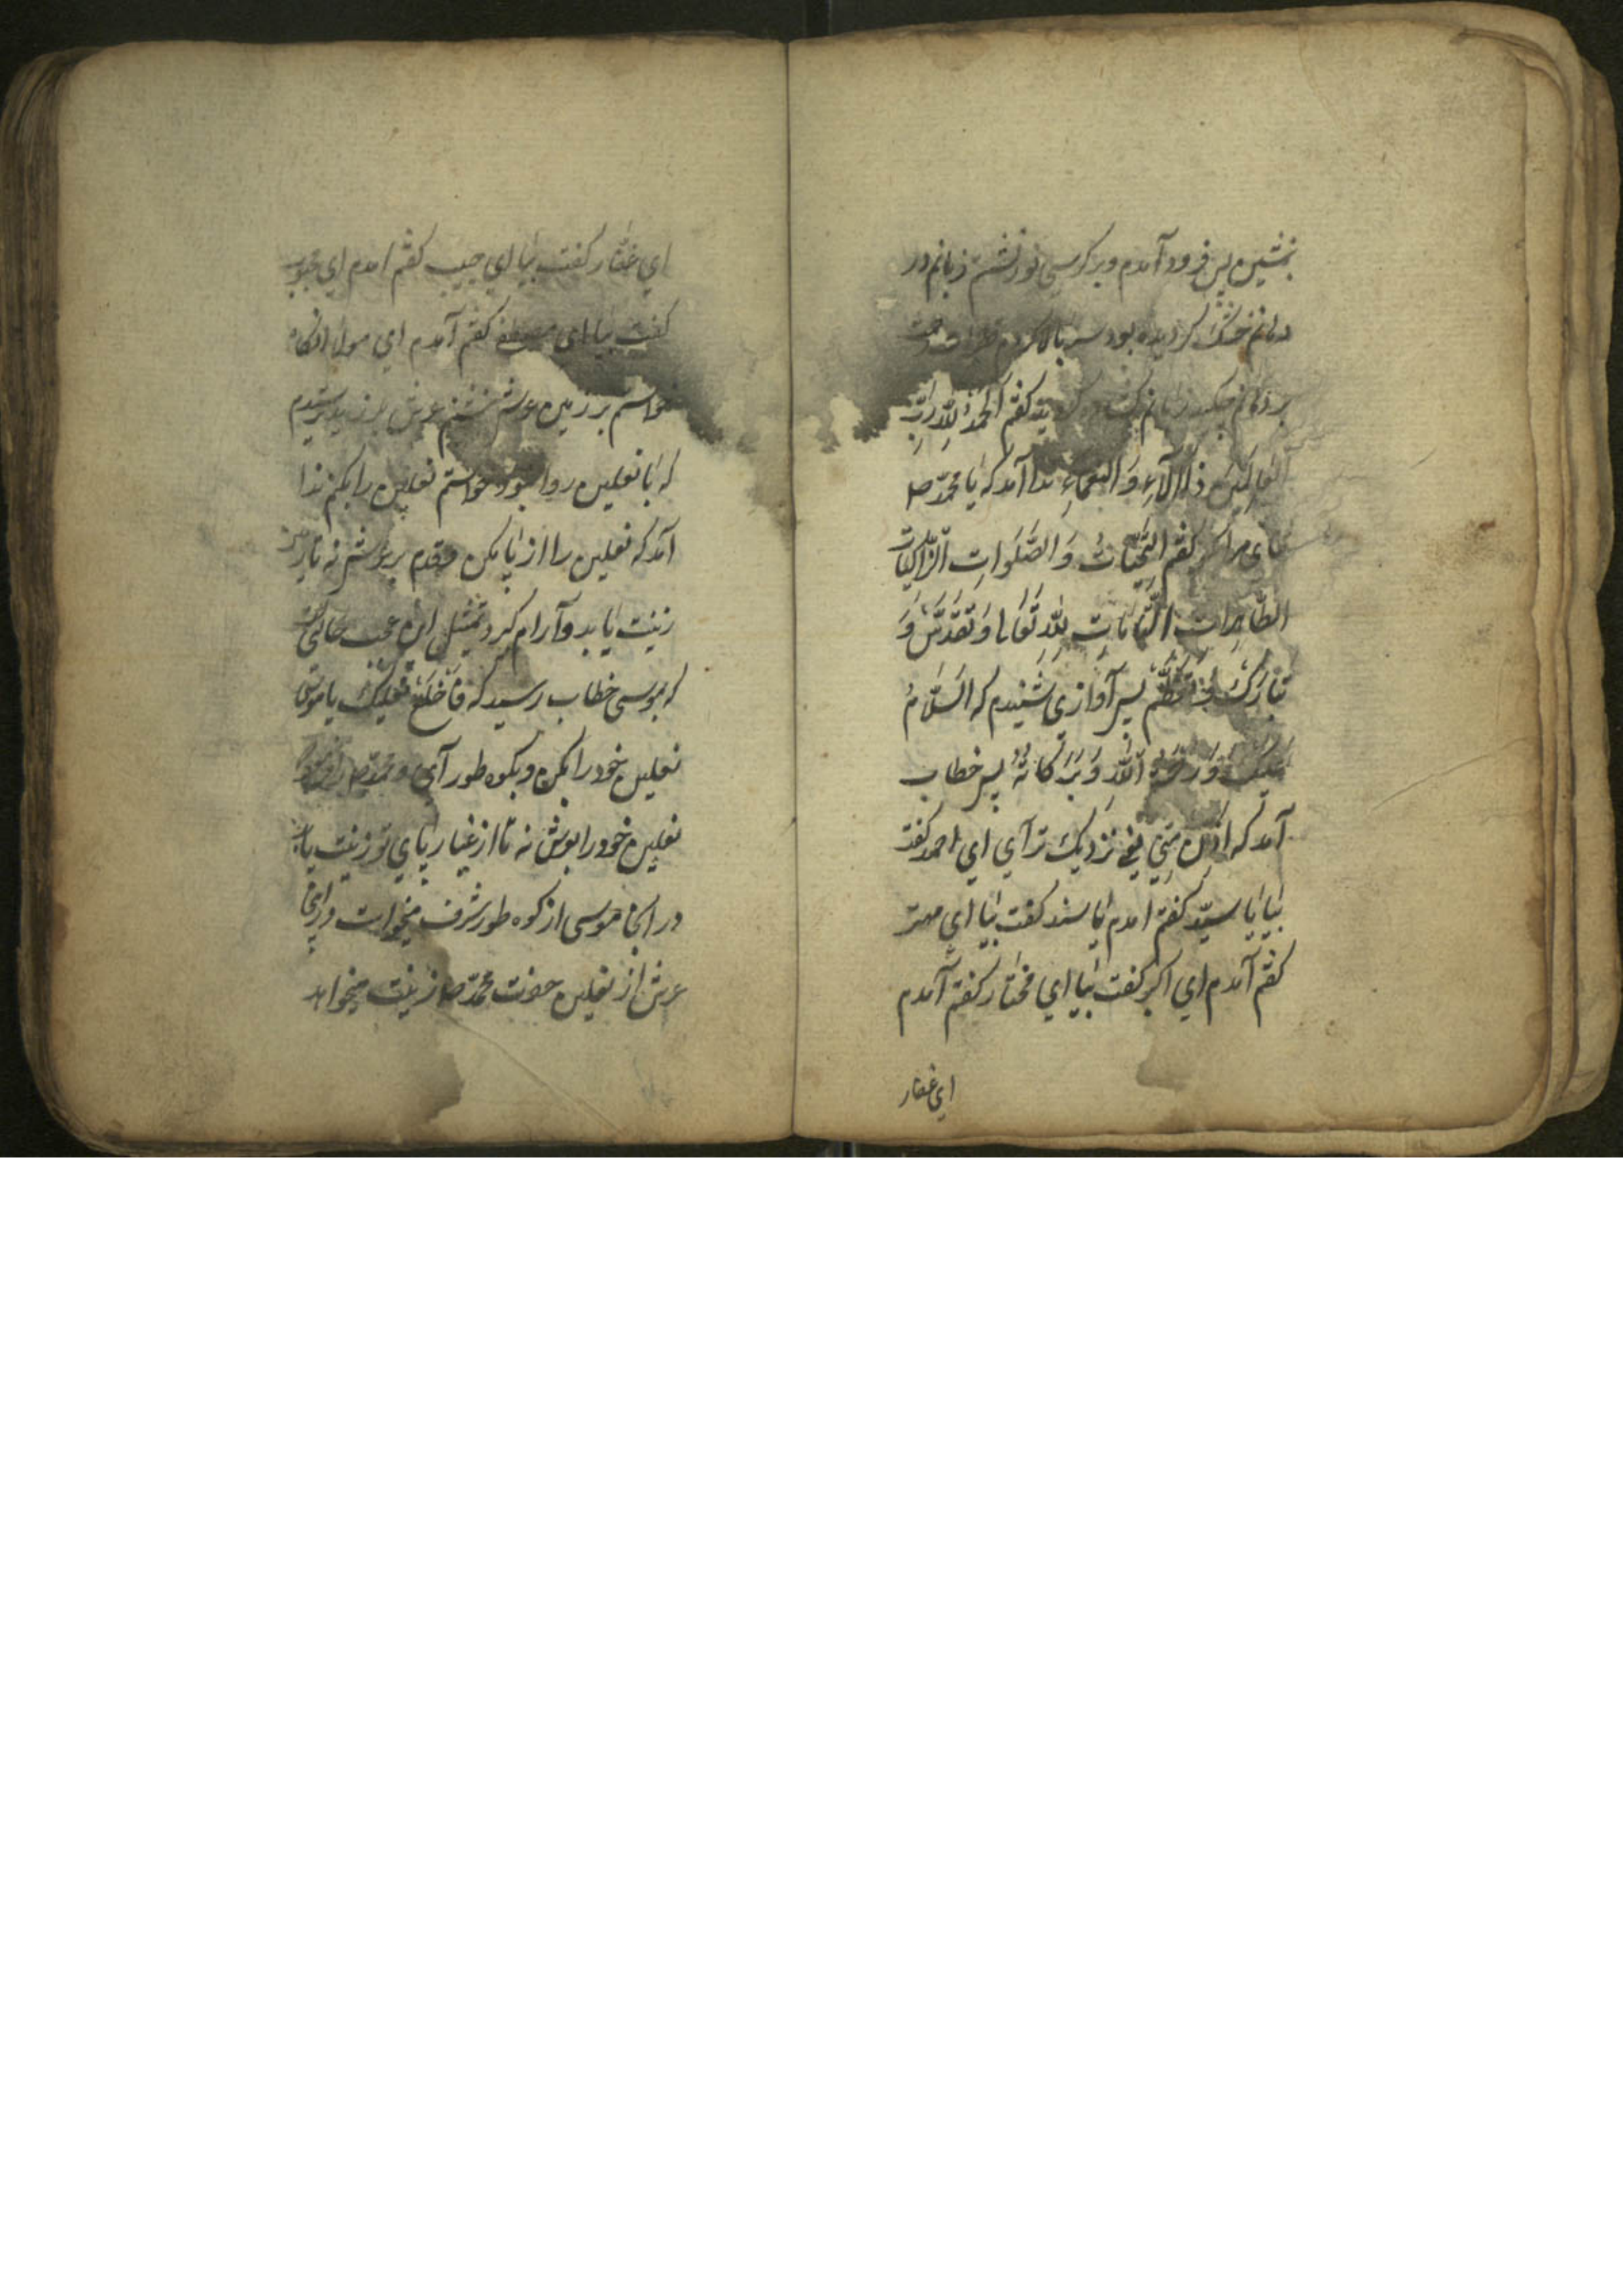 بنشین پس فرود آمدم و بر کرسی نور نشستم زبانم در
دهانم خشک گردیده بود سر بالا کردم
بر دهانم چکید زبانم کفتم اَلحَمدُ لِلّهِ رَبِّ
العالَمینَ ذِالآلآءِ وَ النَعمآءِ ندا آمد که یا محمّد ص
ثنای مرا بکو کفتم التَحِیّاتُ وَ الصَّلَواتِ الزّاکیات
الطّاهِرات لِلّهِ تَعَالی وَ تَقَدَّسَ وَ
تَبارَکَ وَ تَعَظَّمَ پس آوازی شنیدم که السَلامُ
عَلیکَ وَ رَحمَةُ اللّهِ وَ بَرَکاتُهُ پس خطاب
آمد که اُدنُ مِنّی یعنی نزدیک تر آی ای احمد کفت
بیا یا سیّد کفتم امدم یا سند کفت بیا ای مهتر
کفتم آمدم ای اکبر کفت بیا ای مختار کفتم آمدم
ای غفار
ای غفار کفت بیا ای حبیب کفتم امدم ای محبوب
کفت بیا ای مصطفی کفتم آمدم ای مولا انکاه
خواستم بر زمین عرش نشینم عرش بلرزید ترسیدم
که با نعلین روا نبود خواستم نعلین را بکنم ندا
آمد که نعلین را از پا مکن و قدم بر عرش نه تا
زینت یابد و آرام کیرد تمثیل این عجب حالی
که بموسی خطاب رسید که فَاخلَع نَعلیک یا موسی
نعلین خود را بکن و بکوه طور آی و محمّد ص را
نعلین خود را بعرش نه تا از غبار پای تو زینت یابد
در انجا موسی از کوه طور شرف میخواست و در اینجا
عرش از نعلین حضرت محمّد ص زینت میخواهد